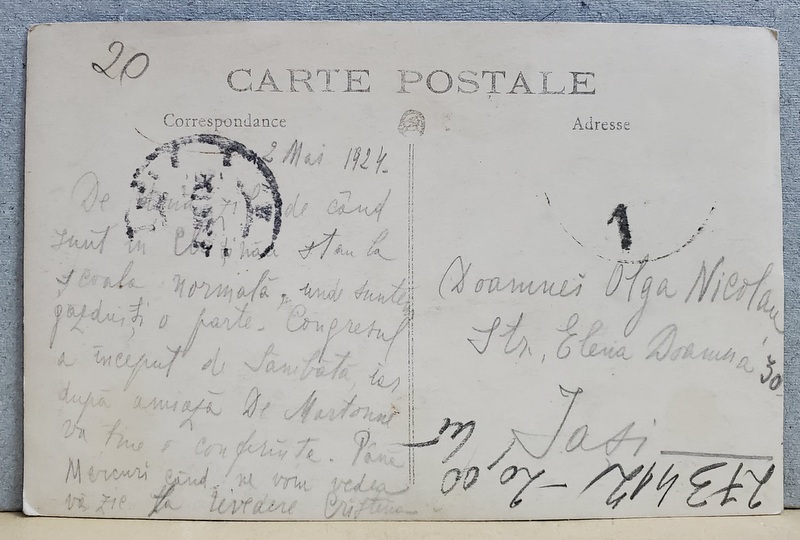 20
CARTE POSTALE
Correspondance
Adresse
2 Mai 1924.
De zile de când
sunt în Chișinău stau la
școala normală, unde suntem
găzduiți o parte. Congresul
a început de Sâmbătă, iar
după amiază De Martonne
va ține o conferință. Până
Mercuri când ne vom vedea
va zic la revedere Cristina
1
Doamnei Olga Nicolau
Str. Elena Doamna 30
Iași
273412 - 20,00
lei